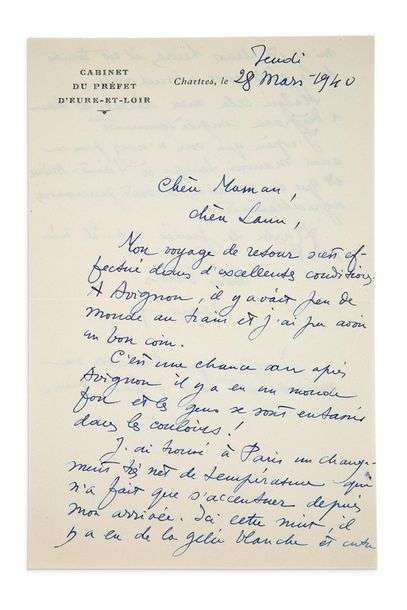 CABINET
DU PRÉFET
D'EURE-ET-LOIR
Jeudi
Chartres, le 28 Mars 1940
Chère Maman,
chère Laure,
Mon voyage de retour s'est ef-
fectué dans d'excellentes conditions.
A Avignon, il y avait peu de
monde au train et j'ai pu avoir
un bon coin.
C'est une chance car après
Avignon il y a eu un monde
fou et les gens se sont entassés
dans les couloirs !
J'ai trouvé à Paris un change-
ment très net de température qui
n'a fait que s'accentuer depuis
mon arrivée. Ici cette nuit, il
y a eu de la gelée blanche et